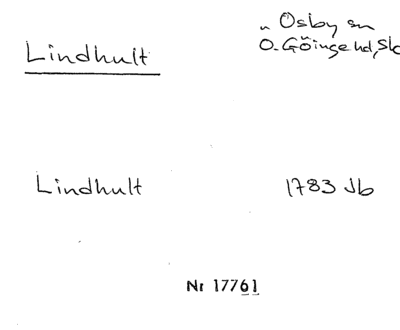 Lindhult
" Osby sn
Ö. Göinge hd, Sk
Lindhult 1783 Jb
Nr 17761